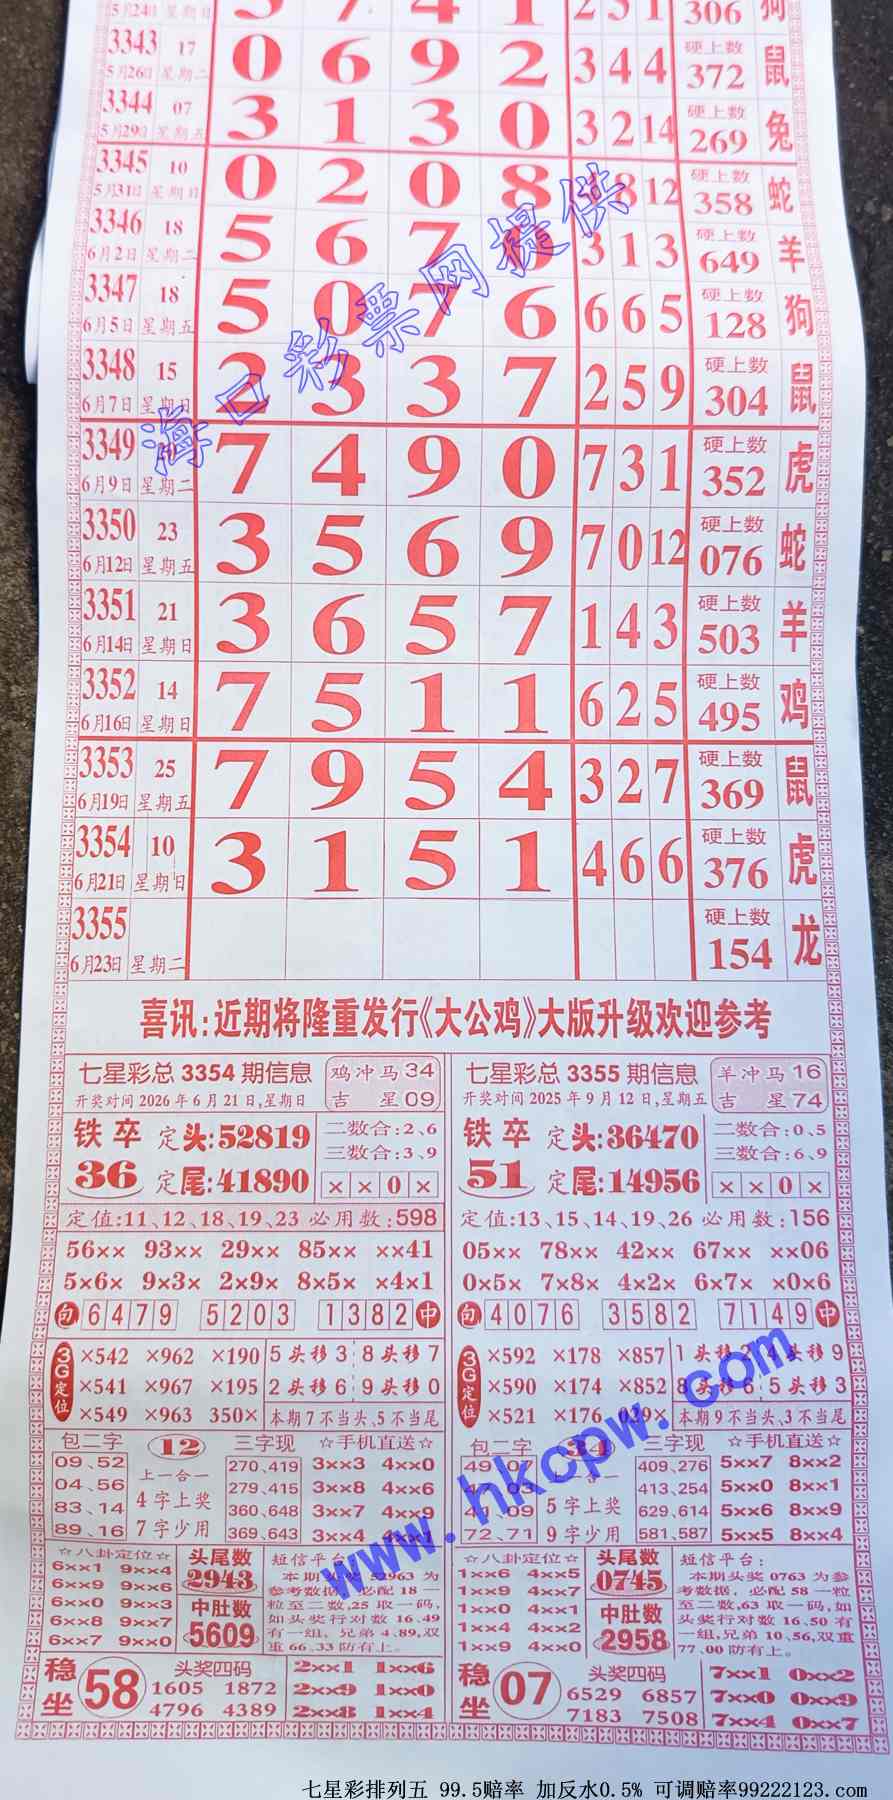 5月24日 星期日 5 7 4 1 2 5 1 306 狗
3343 17 硬上数
5月26日 星期二 0 6 9 2 3 4 4 372 鼠
3344 07 硬上数
5月29日 星期五 3 1 3 0 3 2 14 269 兔
3345 10 硬上数
5月31日 星期日 0 2 0 8 8 12 358 蛇
3346 18 硬上数
6月2日 星期二 5 6 7 3 1 3 649 羊
3347 18 硬上数
6月5日 星期五 5 0 7 6 6 6 5 128 狗
3348 15 硬上数
6月7日 星期日 2 3 3 7 2 5 9 304 鼠
3349 硬上数
6月9日 星期二 7 4 9 0 7 3 1 352 虎
3350 23 硬上数
6月12日 星期五 3 5 6 9 7 0 12 076 蛇
3351 21 硬上数
6月14日 星期日 3 6 5 7 1 4 3 503 羊
3352 14 硬上数
6月16日 星期日 7 5 1 1 6 2 5 495 鸡
3353 25 硬上数
6月19日 星期五 7 9 5 4 3 2 7 369 鼠
3354 10 硬上数
6月21日 星期日 3 1 5 1 4 6 6 376 虎
3355 硬上数
6月23日 星期二 154 龙
海口彩票网提供
喜讯:近期将隆重发行《大公鸡》大版升级欢迎参考
七星彩总 3354 期信息 鸡冲马34
开奖对间 2026 年 6 月 21 日,星期日 吉 星09
铁卒 定头:52819 二数合:2、6
三数合:3、9
36 定尾:41890 × × 0 ×
定值:11、12、18、19、23 必用数:598
56×× 93×× 29×× 85×× ××41
5×6× 9×3× 2×9× 8×5× ×4×1
包 6479 5203 1382 中
3G定位
×542 ×962 ×190 5头移3 8头移7
×541 ×967 ×195 2头移6 9头移0
×549 ×963 350× 本期7不当头、5不当尾
包二字 12 三字现 ☆手机直送☆
09、52 上一合一 270、419 3××3 4××0
04、56 4字上奖 279、415 3××8 4××6
83、14 7字少用 360、648 3××7 4××9
89、16 369、643 3××4
☆八卦定位☆ 头尾数 短信平台:
6××1 9××4 2943 本期头奖 52963 为
6××9 9××6 参考数据,必配 18 一
6××0 9××3 中肚数 粒至二数,25 取一码,
6××8 9××7 5609 如头奖行对数 16、49
6××7 9××0 有一组,兄弟 4、89,双
重 66、33 防有上。
稳坐 58 头奖四码 2××1 1××6
1605 1872 2××9 1××0
4796 4389 2××8 1××4
七星彩总 3355 期信息 羊冲马16
开奖对间 2025 年 9 月 12 日,星期五 吉 星74
铁卒 定头:36470 二数合:0、5
三数合:6、9
51 定尾:14956 × × 0 ×
定值:13、15、14、19、26 必用数:156
05×× 78×× 42×× 67×× ××06
0×5× 7×8× 4×2× 6×7× ×0×6
包 4076 3582 7149 中
3G定位
×592 ×178 ×857 1头移2 4头移9
×590 ×174 ×852 8头移6 5头移3
×521 ×176 029× 本期9不当头、3不当尾
包二字 34 三字现 ☆手机直送☆
49、07 409、276 5××7 8××2
03 5字上奖 413、254 5××0 8××1
09 9字少用 629、614 5××6 8××9
72、71 581、587 5××5 8××4
☆八卦定位☆ 头尾数 短信平台:
1××6 4××5 0745 本期头奖 0763 为参
1××9 4××7 考数据,必配 58 一粒
1××0 4××1 中肚数 至二数,63 取一码,如
1××4 4××2 2958 头奖行对数 16、50 有
1××9 4××0 一组,兄弟 10、56,双重
77、00 防有上。
稳坐 07 头奖四码 7××1 0××2
6529 6857 7××0 0××9
7183 7508 7××4 0××7
www.hkcpw.com
七星彩排列五 99.5赔率 加反水0.5% 可调赔率99222123.com